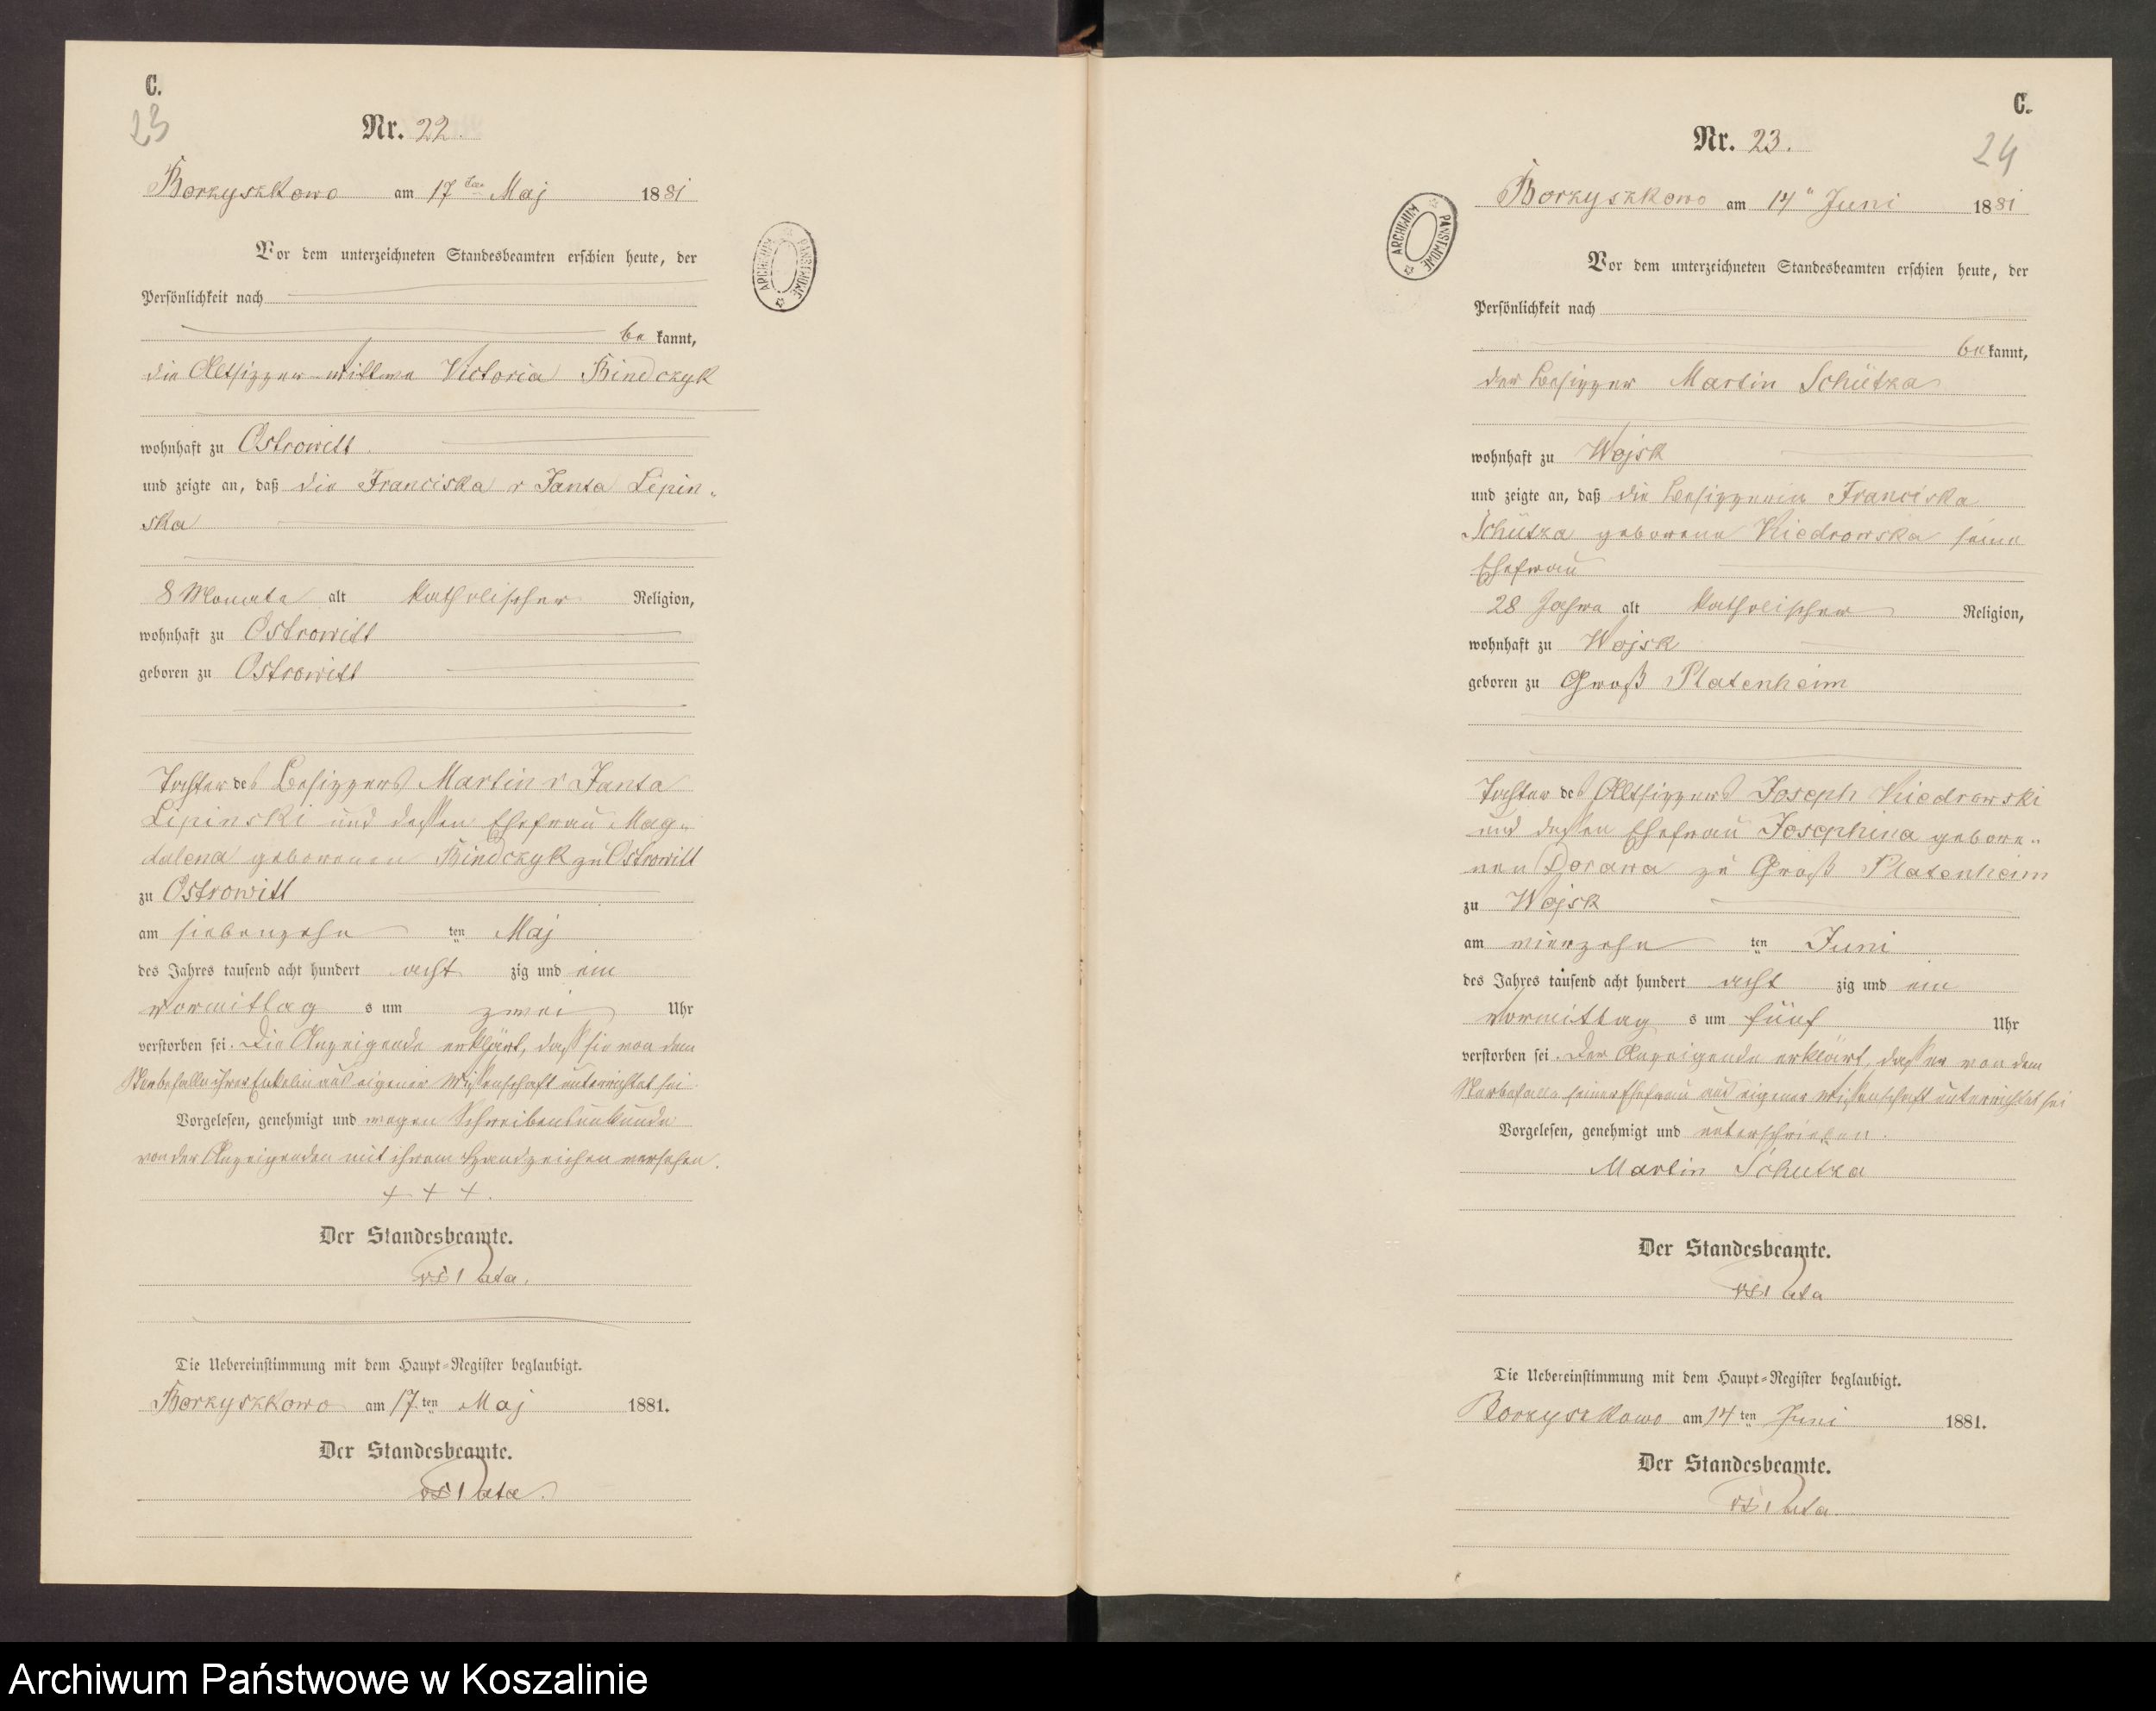 C.
23
Nr. 22.
Borzyszkowo am 17ten Maj 1881
Vor dem unterzeichneten Standesbeamten erschien heute, der
Persönlichkeit nach
be kannt,
die Altsitzer-Wittwe Victoria
wohnhaft zu Ostrowitt
und zeigte an, daß die Franciska v Janta Lipin-
ska
8 Monate alt katholischer Religion,
wohnhaft zu Ostrowitt
geboren zu Ostrowitt
Tochter des Besitzers Martin v Janta
Lipinski und dessen Ehefrau Mag-
dalena geborenen zu Ostrowitt
zu Ostrowitt
am siebenzehn ten Maj
des Jahres tausend acht hundert acht zig und ein
Vormittag s um zwei Uhr
verstorben sei. Die Anzeigende erklärt, daß sie von dem
Sterbefalle ihrer Enkelin aus eigener Wissenschaft unterrichtet sei
Vorgelesen, genehmigt und wegen Schreibensunkunde
von der Anzeigenden mit ihrem Handzeichen versehen.
+ + +.
Der Standesbeamte.
Die Uebereinstimmung mit dem Haupt-Register beglaubigt.
Borzyszkowo am 17 ten Maj 1881.
Der Standesbeamte.
C.
24
Nr. 23.
Borzyszkowo am 14" Juni 1881
Vor dem unterzeichneten Standesbeamten erschien heute, der
Persönlichkeit nach
be kannt,
der Besitzer Martin Schütza
wohnhaft zu Wojsk
und zeigte an, daß die Besitzerin Franciska
Schütza geborene Kiedrowska seine
Ehefrau
28 Jahre alt katholischer Religion,
wohnhaft zu Wojsk
geboren zu Groß Platenheim
Tochter des Altsitzers Joseph Kiedrowski
und dessen Ehefrau Josephina gebore-
nen Dorawa zu Groß Platenheim
zu Wojsk
am vierzehn ten Juni
des Jahres tausend acht hundert acht zig und ein
Vormittag s um fünf Uhr
verstorben sei. Der Anzeigende erklärt, daß er von dem
Sterbefalle seiner Ehefrau aus eigener Wissenschaft unterrichtet sei
Vorgelesen, genehmigt und unterschrieben.
Martin Schutza
Der Standesbeamte.
Die Uebereinstimmung mit dem Haupt-Register beglaubigt.
Borzyszkowo am 14 ten Juni 1881.
Der Standesbeamte.
ARCHIWUM PAŃSTWOWE
ARCHIWUM PAŃSTWOWE
Archiwum Państwowe w Koszalinie